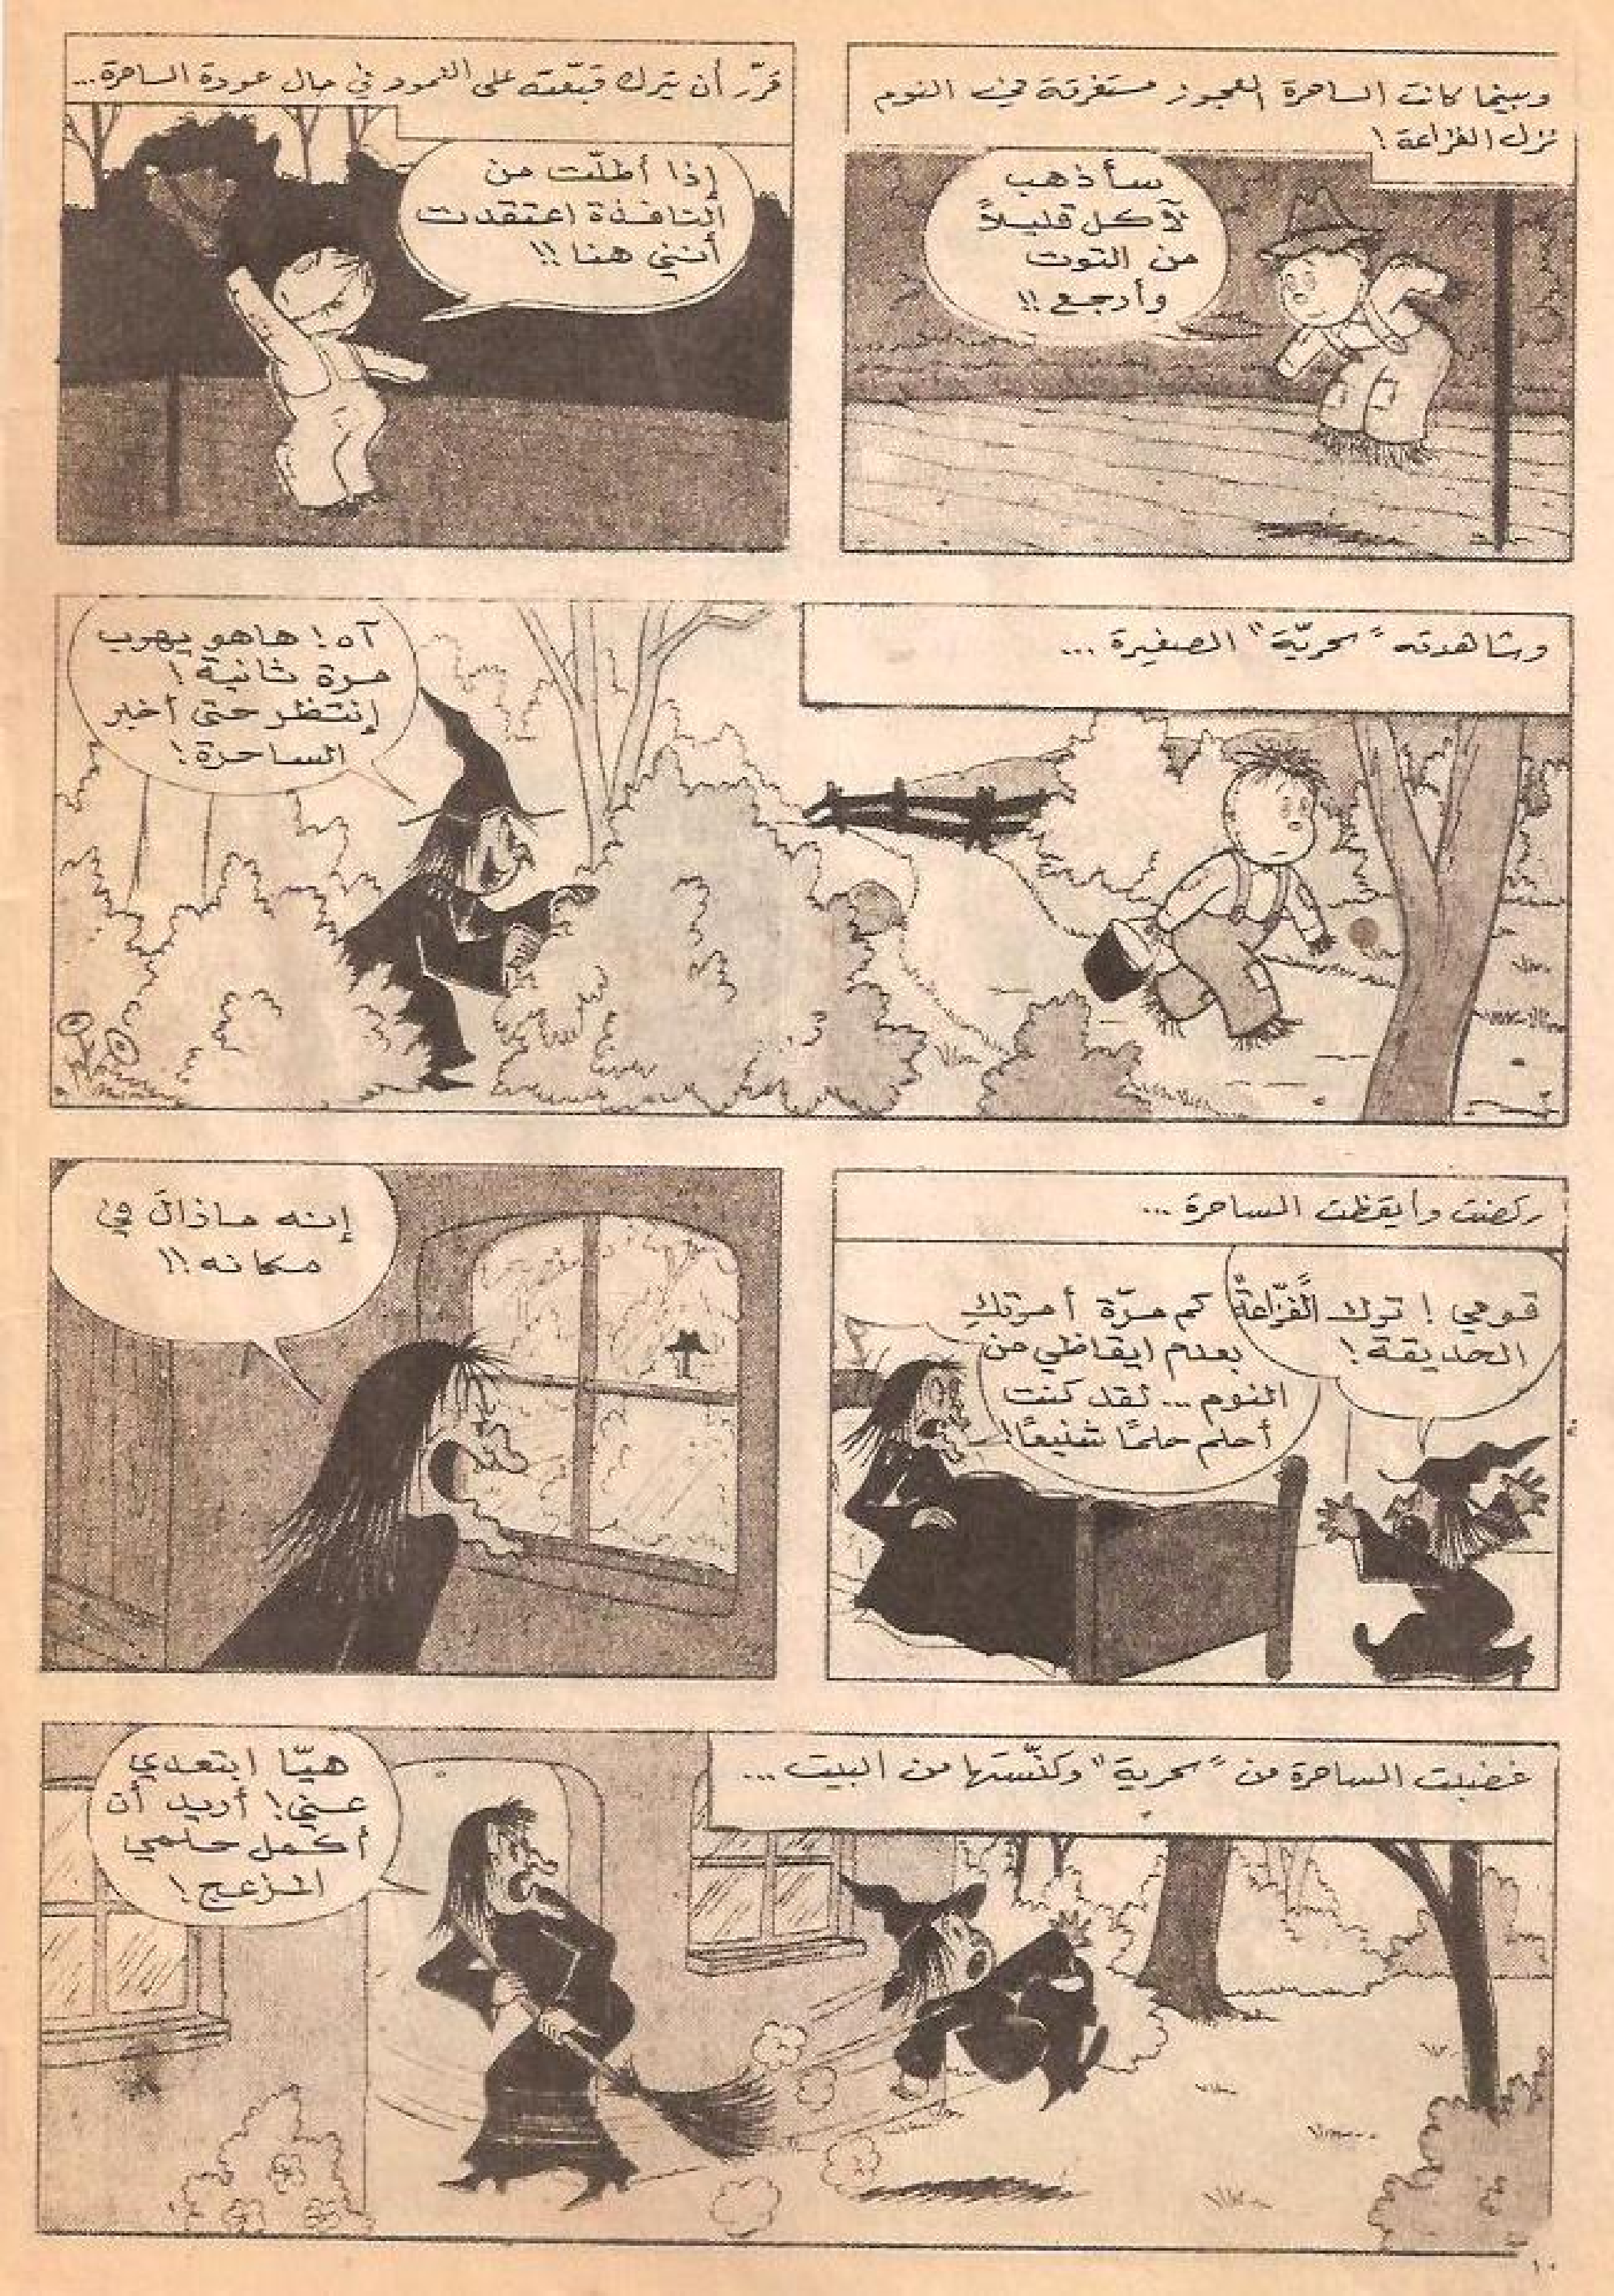 وبينما كانت الساحرة العجوز مستغرقة في النوم
نزل الفزاعة !
سأذهب
لآكل قليلاً
من التوت
وأرجع !!
قرّر أن يترك قبّعته على العمود في حال عودة الساحرة...
إذا أطلّت من
النافذة اعتقدت
أنني هنا !!
وشاهدته "سحريّة" الصغيرة ...
آه ! هاهو يهرب
مرة ثانية !
إنتظر حتى أخبر
الساحرة !
ركضت وأيقظت الساحرة ...
قومي ! ترك الفزّاعة
الحديقة !
كم مرّة أمرتكِ
بعدم ايقاظي من
النوم ... لقد كنت
أحلم حلمًا شنيعًا !
إنه مازال في
مكانه !!
غضبت الساحرة من "سحرية" وكنّستها من البيت ...
هيّا ابتعدي
عني ! أريد أن
أكمل حلمي
المزعج !
١٠